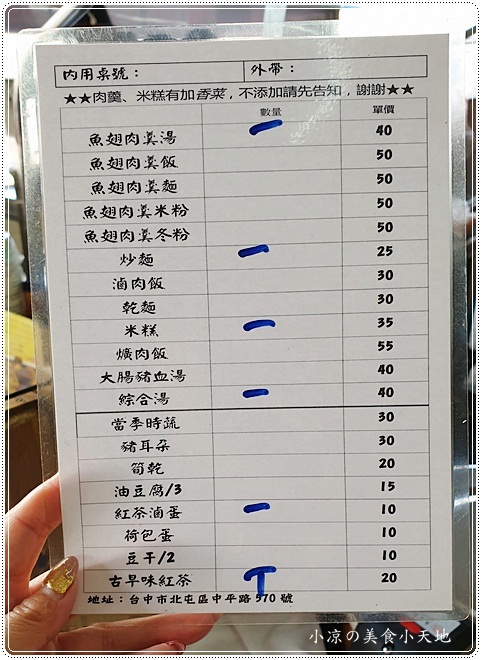 內用桌號： 外帶：
★★肉羹、米糕有加香菜，不添加請先告知，謝謝★★
數量 單價
魚翅肉羹湯 一 40
魚翅肉羹飯 50
魚翅肉羹麵 50
魚翅肉羹米粉 50
魚翅肉羹冬粉 50
炒麵 一 25
滷肉飯 30
乾麵 30
米糕 一 35
爌肉飯 55
大腸豬血湯 40
綜合湯 一 40
當季時蔬 30
豬耳朵 30
筍乾 20
油豆腐/3 15
紅茶滷蛋 一 10
荷包蛋 10
豆干/2 10
古早味紅茶 T 20
地址：台中市北屯區中平路970號
小凉の美食小天地